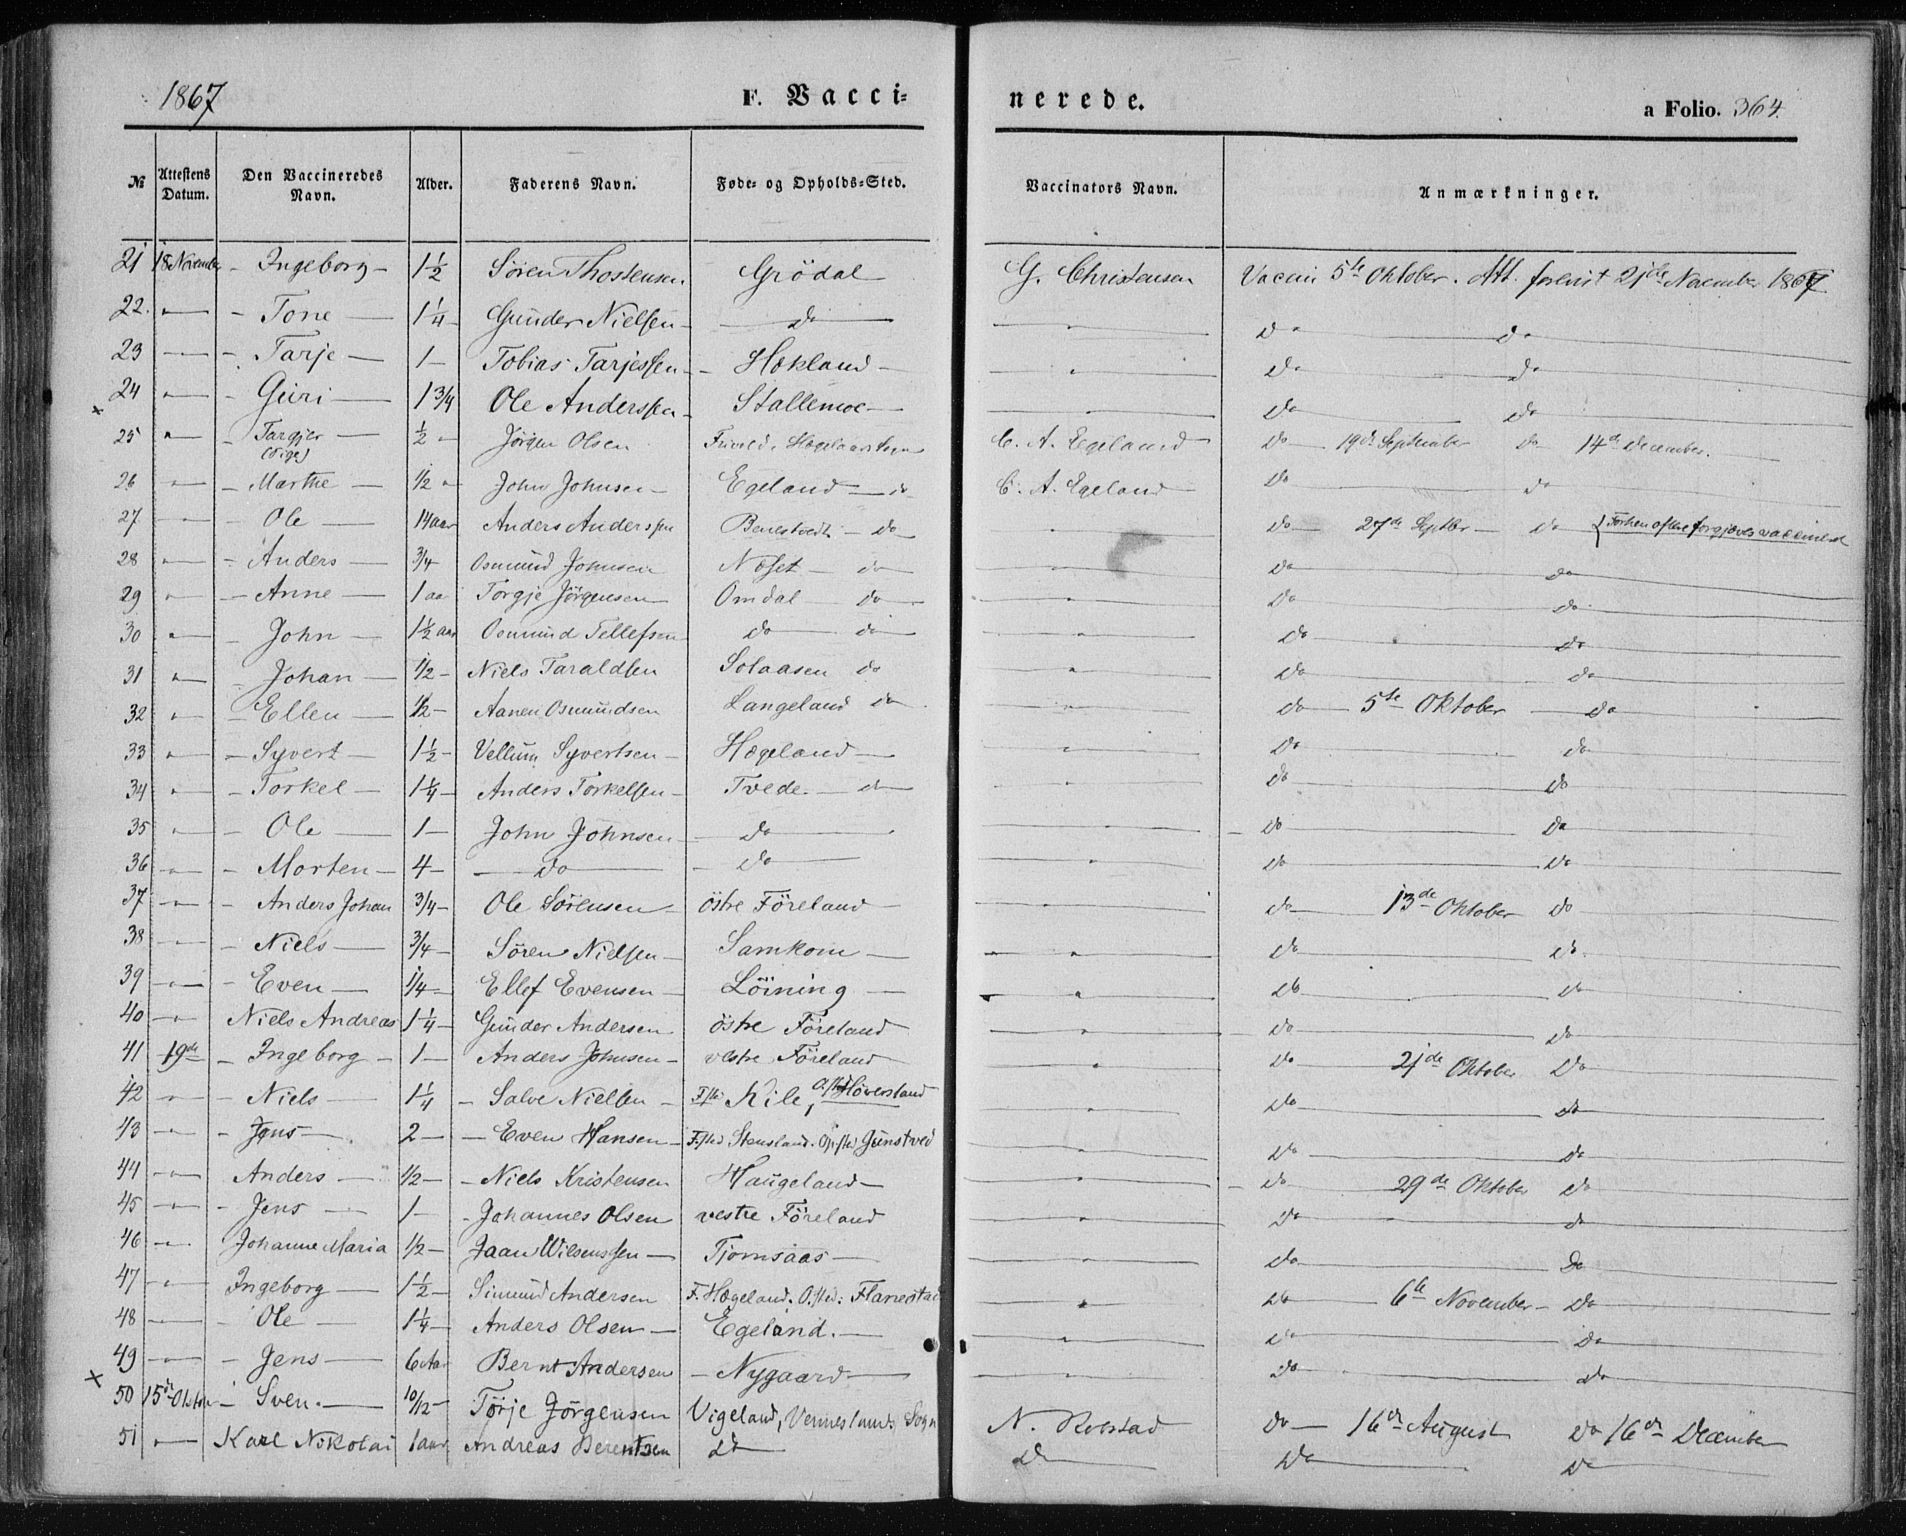 1867 F. Vacci= nerede. a Folio. 364.
No Attestens Datum. Den Vaccineredes Navn. Alder. Faderens Navn. Føde= og Opholds=Sted. Vaccinators Navn. Anmærkninger.
21 18 November - Ingeborg - 1 1/2 Søren Thostensen Grödal G. Christensen Vacci 5te Oktober. Att. forevist 21de November 1867
22. " - Tone - 1 1/4 - Gunder Nielsen - do " Do Do
23 - Tarje - 1 - Tobias Tarjessen - Hækland - " Do Do
24 " - Guri - 1 3/4 Ole Anderssen - Stallemoe - " Do Do
x
25 " - Targjer - 1/2 " Jörgen Olsen Hægelands Sogn C. A. Egeland Do 19de September Do 14de December.
(Pige)
26 " - Marthe - 1/2 " John Johnsen - Egeland - do C. A. Egeland Do Do
27 " - Ole - 14 aar Anders Anderssen Benestvedt - Do " Do 27de Septbr - do { Forhen oftere forgjæves vaccineret
28 " - Anders - 3/4 Osmund Johnsen Næset - do " Do Do
29 " - Anne - 1 aa Torgje Jörgensen Omdal - do " Do Do
30 " - John - 1 1/2 aar Osmund Tellefsen do do " Do Do
31 " - Johan - 1/2 - Niels Taraldsen Solaasen do " Do Do
32 " - Ellen - 1/2 - Aanen Osmundsen Langeland do " Do 5te Oktober - Do
33 " - Syvert - 1 1/2 - Vellum Syvertsen - Hægeland - " Do do
34 " - Torkel - 1 1/4 - Anders Torkelsen - Tvede. - do " Do Do
35 " - Ole - 1 - John Johnsen - Do " - Do Do
36 " - Morten - 4 - - Do - - Do " Do Do
37 " - Anders Johan 3/4 - Ole Sörensen östre Föreland " Do 13de Oktober Do
38 " - Niels - 3/4 - Sören Nielsen - Samkom - " Do Do
39 " - Even - 1/4 - Ellef Evensen - Löining - " Do Do
40 " Niels Andreas 1 1/4 - Gunder Andersen östre Föreland " Do Do
41 19de - Ingeborg - 1 - Anders Johnsen - vestre Föreland " Do 21de Oktober Do
42 " - Niels - 1 1/4 - Salve Nielsen - F.ste Kile, O.sted Höverstand " Do Do
43 " - Jens - 2 - - Even Hansen - F.sted Stensland. Op.sted Gunstved " Do Do
44 " - Anders - 1/2 - - Niels Kristensen Haugeland - " - Do 29de Oktober Do
45 " - Jens - 1 - - Johannes Olsen vestre Föreland " Do do
46 " Johanne Maria 1/2 - Jaan Wilsenssen - Tjomsaas - " Do Do
47 " Ingeborg - 1 1/2 - Simund Andersen F. Hægeland. O.sted: Flanestad " Do 6te November - Do
48 " - Ole - 1 1/4 - Anders Olsen - Egeland. - " Do Do
49 " - Jens - 6 aar Bernt Andersen - Nygaard - " Do Do
x
50 15de Oktober - Sven. - 10/12 - Törje Jörgensen Vigeland, Vennesland Sogn N. Robstad Do - 16de August Do 16de December
51 " Karl Nikolai 1 aar Andreas Berentsen Do Do Do Do